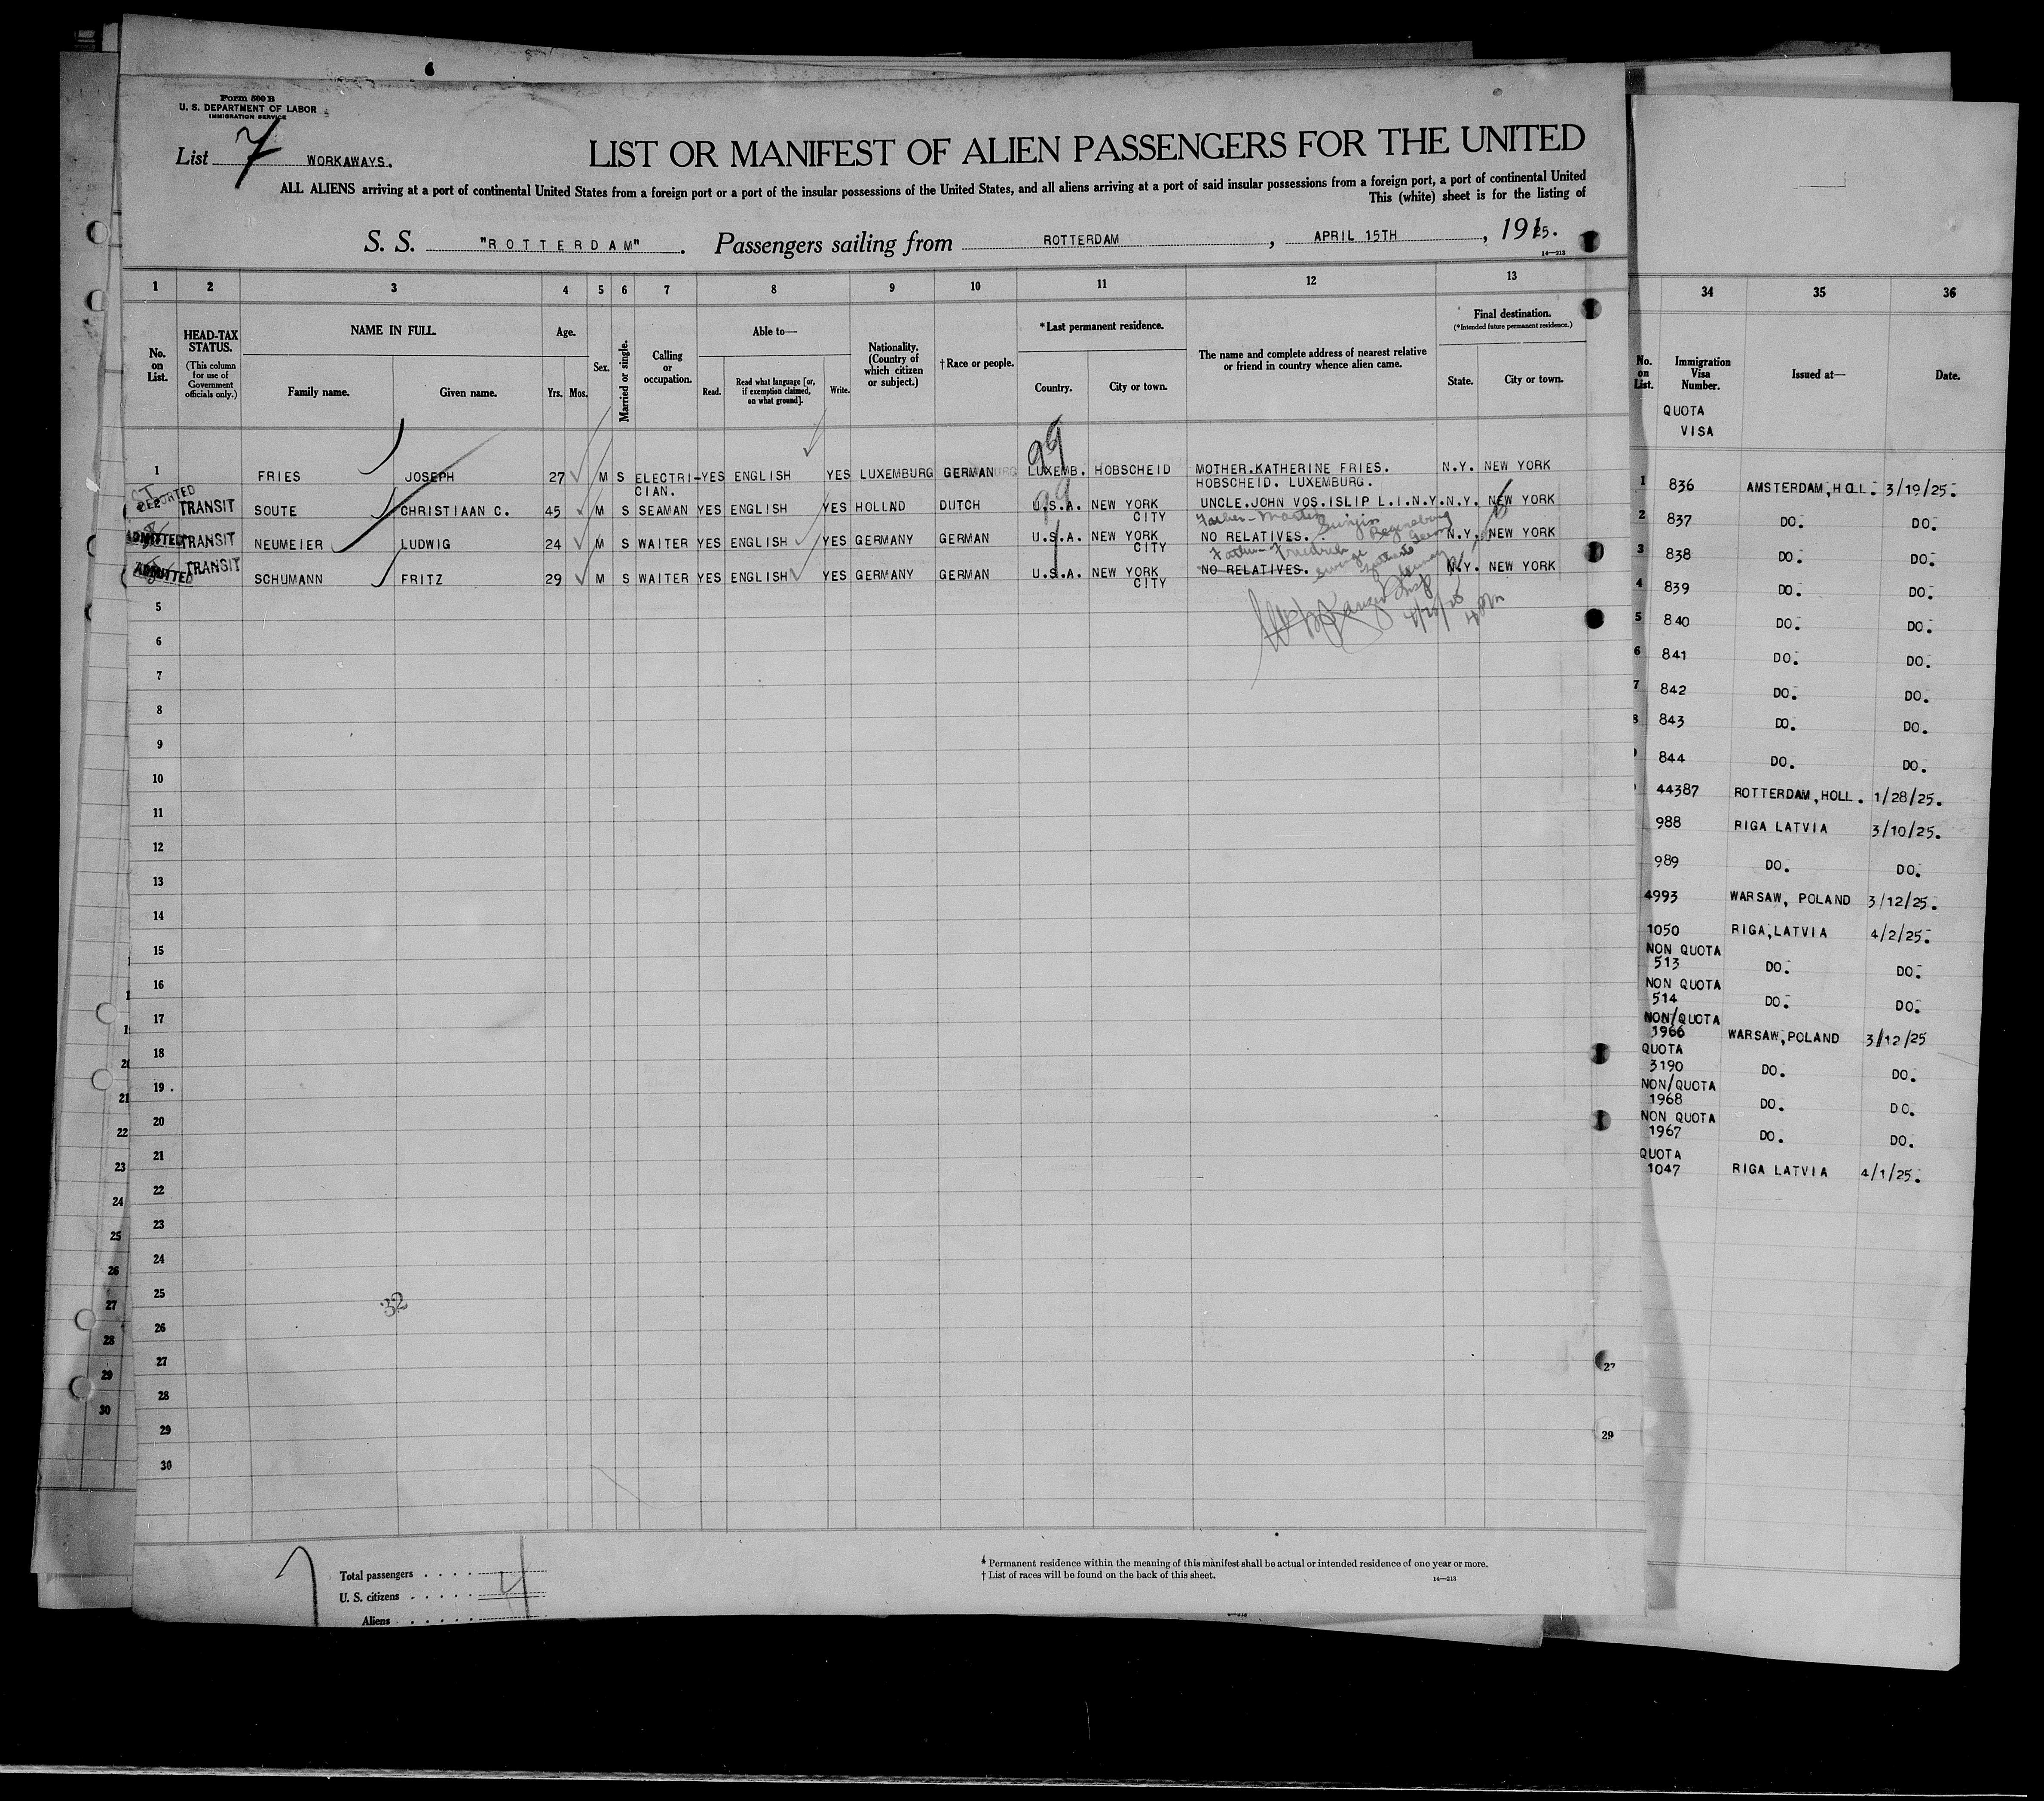 Form 500 B
U. S. DEPARTMENT OF LABOR
IMMIGRATION SERVICE
List 7 WORKAWAYS.
LIST OR MANIFEST OF ALIEN PASSENGERS FOR THE UNITED
ALL ALIENS arriving at a port of continental United States from a foreign port or a port of the insular possessions of the United States, and all aliens arriving at a port of said insular possessions from a foreign port, a port of continental United
This (white) sheet is for the listing of
S. S. "ROTTERDAM". Passengers sailing from ROTTERDAM, APRIL 15TH, 1925.
14—213
1 2 3 4 5 6 7 8 9 10 11 12 13
No. on List.
HEAD-TAX STATUS.
(This column for use of Government officials only.)
NAME IN FULL.
Family name. Given name.
Age.
Yrs. Mos.
Sex.
Married or single.
Calling or occupation.
Able to—
Read. Read what language [or, if exemption claimed, on what ground]. Write.
Nationality. (Country of which citizen or subject.)
†Race or people.
*Last permanent residence.
Country. City or town.
The name and complete address of nearest relative or friend in country whence alien came.
Final destination.
(*Intended future permanent residence.)
State. City or town.
99
1 FRIES JOSEPH 27 M S ELECTRI-CIAN. YES ENGLISH YES LUXEMBURG GERMAN LUXEMB. HOBSCHEID MOTHER.KATHERINE FRIES. HOBSCHEID. LUXEMBURG. N.Y. NEW YORK
TRANSIT SOUTE CHRISTIAAN C. 45 M S SEAMAN YES ENGLISH YES HOLLAND DUTCH U.S.A. NEW YORK CITY UNCLE.JOHN VOS.ISLIP L.I.N.Y. N.Y. NEW YORK
ADMITTED TRANSIT NEUMEIER LUDWIG 24 M S WAITER YES ENGLISH YES GERMANY GERMAN U.S.A. NEW YORK CITY NO RELATIVES. N.Y. NEW YORK
Father-
ADMITTED TRANSIT SCHUMANN FRITZ 29 M S WAITER YES ENGLISH YES GERMANY GERMAN U.S.A. NEW YORK CITY NO RELATIVES. N.Y. NEW YORK
Father-Friedrich
5
6
7
8
9
10
11
12
13
14
15
16
17
18
19
20
21
22
23
24
25
32
26
27
28
29
30
Total passengers
U. S. citizens
Aliens
4
* Permanent residence within the meaning of this manifest shall be actual or intended residence of one year or more.
† List of races will be found on the back of this sheet.
14—213
21
22
23
24
25
26
27
28
29
30
27
29
34 35 36
No. on List.
Immigration Visa Number.
Issued at—
Date.
QUOTA
VISA
1 836 AMSTERDAM,HOLL. 3/19/25.
2 837 DO. DO.
3 838 DO. DO.
4 839 DO. DO.
5 840 DO. DO.
6 841 DO. DO.
7 842 DO. DO.
8 843 DO. DO.
844 DO. DO.
44387 ROTTERDAM,HOLL. 1/28/25.
988 RIGA LATVIA 3/10/25.
989 DO. DO.
4993 WARSAW, POLAND 3/12/25.
1050 RIGA,LATVIA 4/2/25.
NON QUOTA
513 DO. DO.
NON QUOTA
514 DO. DO.
NON/QUOTA
1966 WARSAW,POLAND 3/12/25
QUOTA
3190 DO. DO.
NON/QUOTA
1968 DO. DO.
NON QUOTA
1967 DO. DO.
QUOTA
1047 RIGA LATVIA 4/1/25.